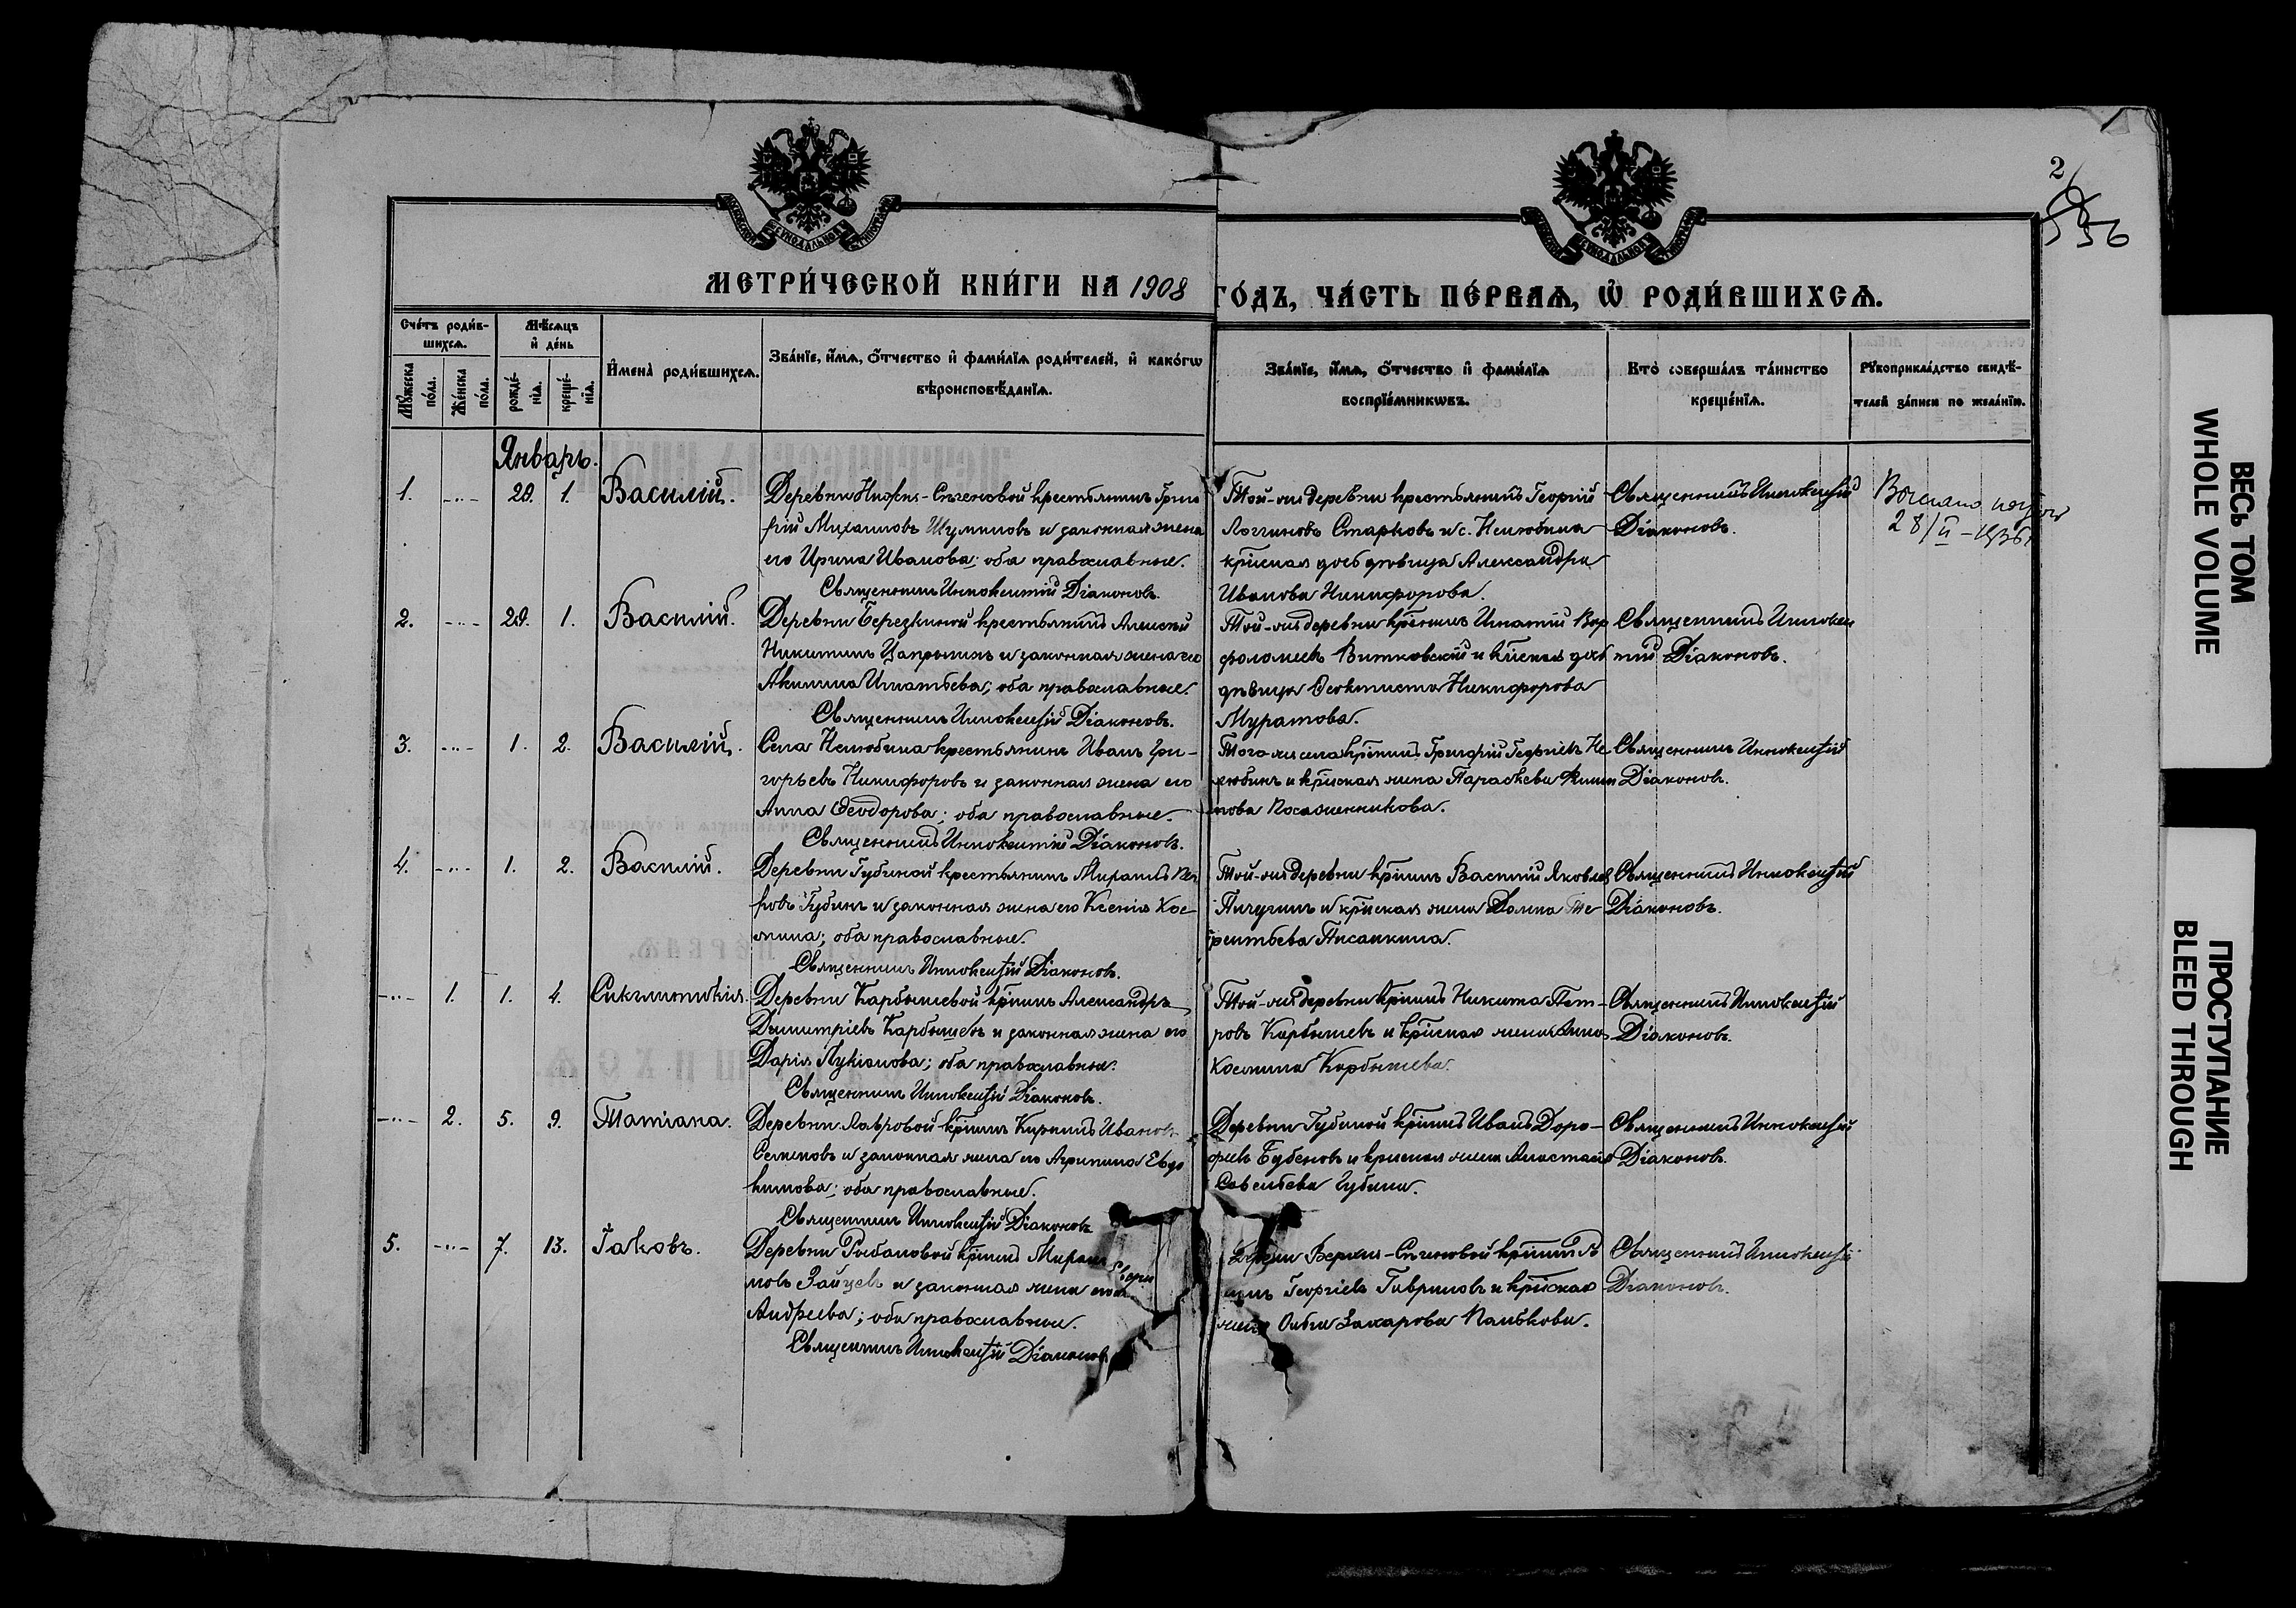 МЕТРИ́ЧЕСКОЙ КНИ́ГИ НА 1908 ГО́ДЪ, ЧА́СТЬ ПЕ́РВАѦ, Ѡ҆ РОДИ́ВШИХСѦ.
2
56
Сче́тъ роди́в-
шихсѧ.
Мѣ́сѧцъ
и҆ де́нь
Мꙋ́жеска по́ла.
Же́нска по́ла.
рожде́-
нїѧ.
креще́-
нїѧ.
И҆мена̀ роди́вшихсѧ.
Зва́нїе, и҆́мѧ, ѻ҆́тчество и҆ фами́лїѧ роди́телей, и҆ како́гѡ
вѣроисповѣ́данїѧ.
Зва́нїе, и҆́мѧ, ѻ҆́тчество и҆ фами́лїѧ
воспрїе́мникѡвъ.
Кто̀ соверша́лъ та́инство
креще́нїѧ.
Рꙋкоприкла́дство свидѣ́-
телей за́писи по жела́нїю.
Январь.
1. -"- 29. 1. Василій.
Деревни Нижне-Сѣченовой крестьянинъ Григо
рій Михаиловъ Шумиловъ и законная жена
его Ирина Иванова; оба православные.
Священникъ Иннокентій Діаконовъ.
Той-же деревни крестьянинъ Георгій
Логгиновъ Старковъ и с. Нелюбина
крѣская дочь дѣвица Александра
Иванова Никифорова.
Священникъ Иннокентій
Діаконовъ.
28/II-1936
2. -"- 29. 1. Василій.
Деревни Березкиной крестьянинъ Алексѣй
Никитинъ Цапрынинъ и законная жена его
Акилина Игнатьева; оба православные.
Священникъ Иннокентій Діаконовъ.
Той-же деревни кр̃нинъ Игнатій Вар
фоломеевъ Витковскій и кр̃ская дочь
дѣвица Ѳеоктиста Никифорова
Муратова.
Священникъ Иннокен
тій Діаконовъ.
3. -"- 1. 2. Василій.
Села Нелюбина крестьянинъ Иванъ Гри-
горьевъ Никифоровъ и законная жена его
Анна Ѳеодорова; оба православные.
Священникъ Иннокентій Діаконовъ.
Того-же села кр̃нинъ Григорій Георгіевъ Не
любинъ и кр̃ская жена Параскева Филип
пова Посаженникова.
Священникъ Иннокентій
Діаконовъ.
4. -"- 1. 2. Василій.
Деревни Губиной крестьянинъ Михаилъ Пет
ровъ Губинъ и законная жена его Ксенія Кос-
мина; оба православные.
Священникъ Иннокентій Діаконовъ.
Той-же деревни кр̃нинъ Василій Яковлев
Пичугинъ и кр̃ская жена Домна Те-
рентьева Писанкина.
Священникъ Иннокентій
Діаконовъ.
-"- 1. 1. 4. Сиклитикія.
Деревни Карбышевой кр̃нинъ Александръ
Димитріевъ Карбышевъ и законная жена его
Дарія Лукіанова; оба православные.
Священникъ Иннокентій Діаконовъ.
Той-же деревни кр̃нинъ Никита Пет-
ровъ Карбышевъ и кр̃ская жена Анна
Космина Карбышева.
Священникъ Иннокентій
Діаконовъ.
-"- 2. 5. 9. Татіана.
Деревни Лавровой кр̃нинъ Кириллъ Ивановъ
Семеновъ и законная жена его Агрипина Евдо
кимова; оба православные.
Священникъ Иннокентій Діаконовъ.
Деревни Губиной кр̃нинъ Иванъ Доро-
феевъ Бубеновъ и кр̃ская жена Анастасія
Савельева Губина.
Священникъ Иннокентій
Діаконовъ.
5. -"- 7. 13. Іаковъ.
Деревни Рыбаловой кр̃нинъ
мовъ Зайцевъ и законная жена его
Андреева; оба православные.
Священникъ Иннокентій Діаконовъ
Деревни Верхне-Сѣченовой кр̃нинъ
Георгіевъ Гавриловъ и кр̃ская
жена Ольга Захарова Панькова.
Священникъ Иннокентій
Діаконовъ.
ВЕСЬ ТОМ
WHOLE VOLUME
ПРОСТУПАНИЕ
BLEED THROUGH